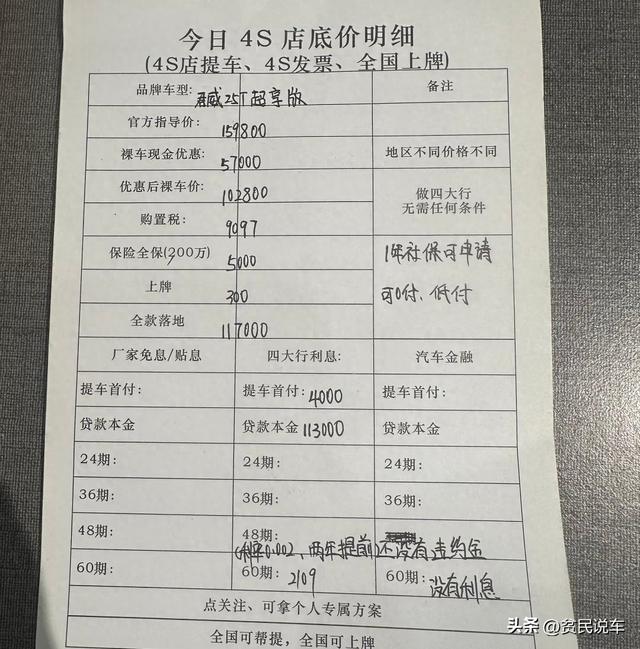 今日 4S 店底价明细
(4S店提车、4S发票、全国上牌)
品牌车型: 君威25T超享版 备注
官方指导价: 159800
裸车现金优惠: 57000 地区不同价格不同
优惠后裸车价: 102800 做四大行
无需任何条件
购置税: 9097
保险全保(200万) 5000 1年社保可申请
上牌 300 可0付、低付
全款落地 117000
厂家免息/贴息 四大行利息: 汽车金融
提车首付: 提车首付: 4000 提车首付:
贷款本金 贷款本金 113000 贷款本金
24期: 24期: 24期:
36期: 36期: 36期:
48期: 48期:
(利率0.002、两年提前还没有违约金
60期: 60期: 2109 60期: 没有利息
点关注、可拿个人专属方案
全国可帮提，全国可上牌
头条 @贫民说车